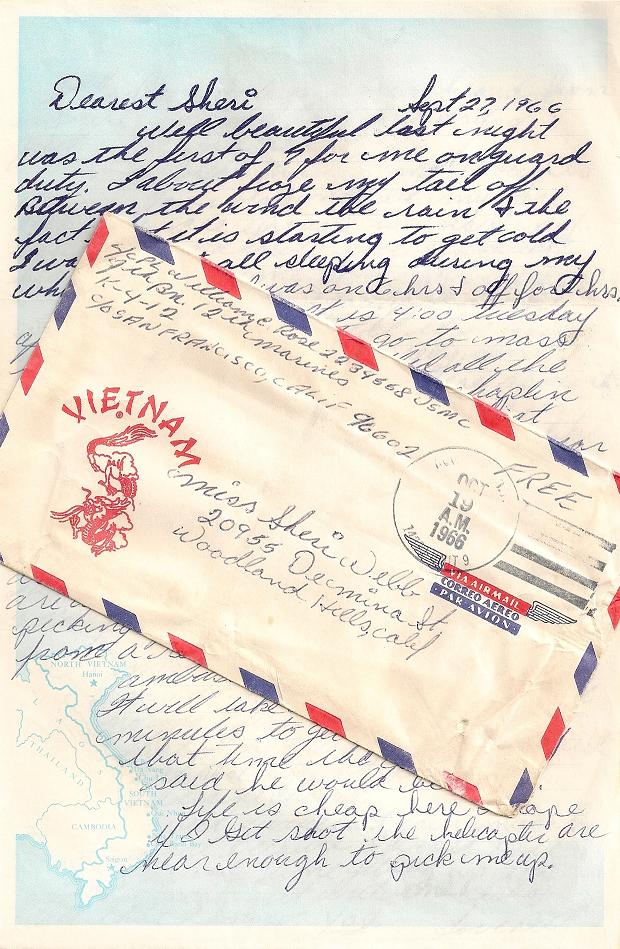 Dearest Sheri
Sept 27, 1966
Well beautiful last night
was the first of 9 for me on guard
duty. I about froze my tail off.
Between the wind the rain & the
fact it is starting to get cold
I wa all sleeping during my
wh was on 6 hrs & off for 6 hrs.
t is 4:00 tuesday
go to mass
all the
chaplin
at
are
picking
from a
ambus
It will take
minutes to ge
that time
said he would be
Life is cheap here I hope
if I get shot the helicopter are
near enough to pick me up.
L/CPL William C Rose 2234568 USMC
4th Bn 12th Marines
K-4-12
C/O SAN FRANCISCO, CALIF 96602
FREE
VIETNAM
OCT
19
A.M.
1966
VIA AIRMAIL
CORREO AEREO
PAR AVION
Miss Sheri Webb
20955 Dumina St
Woodland Hills, Calif
NORTH VIETNAM
Hanoi
LAOS
THAILAND
SOUTH
VIETNAM
CAMBODIA
Saigon